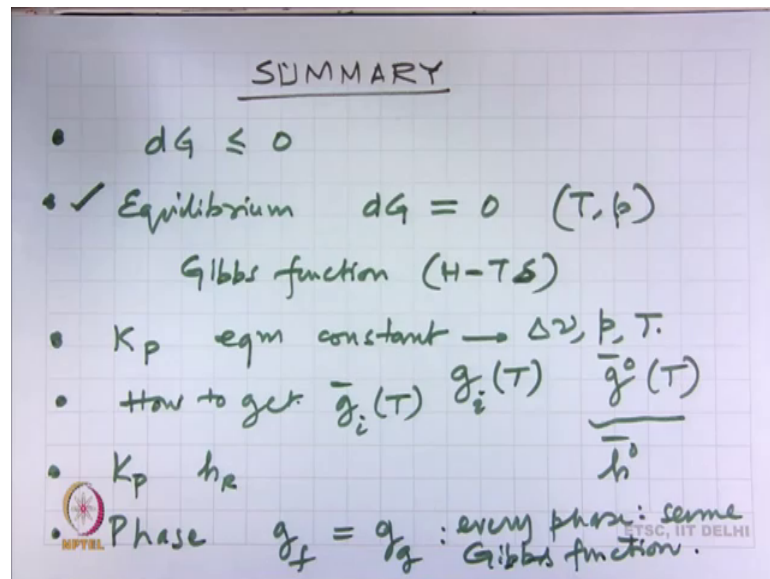 SUMMARY
• dG ≤ 0
• ✓ Equilibrium dG = 0 (T, p)
Gibbs function (H-TS)
• Kp eqm constant → Δν, p, T.
• How to get. ḡᵢ(T) gᵢ(T) ḡ°(T)
h̄°
• Kp hR
• Phase g_f = g_g : every phase: same
Gibbs function.
NPTEL
ETSC, IIT DELHI